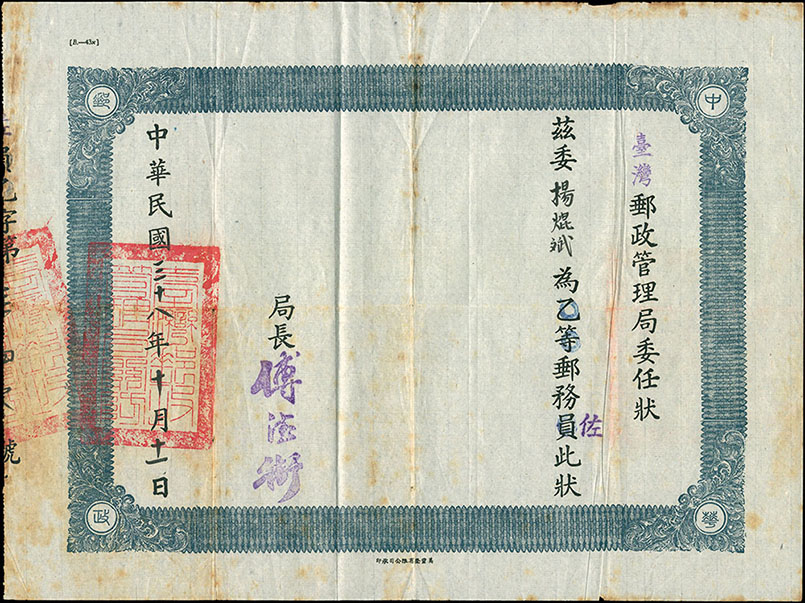 中華郵政
臺灣郵政管理局委任狀
茲委揚焜斌為乙等郵務員佐此狀
局長傅德衛
中華民國三十八年十月十一日
員乙字第 號